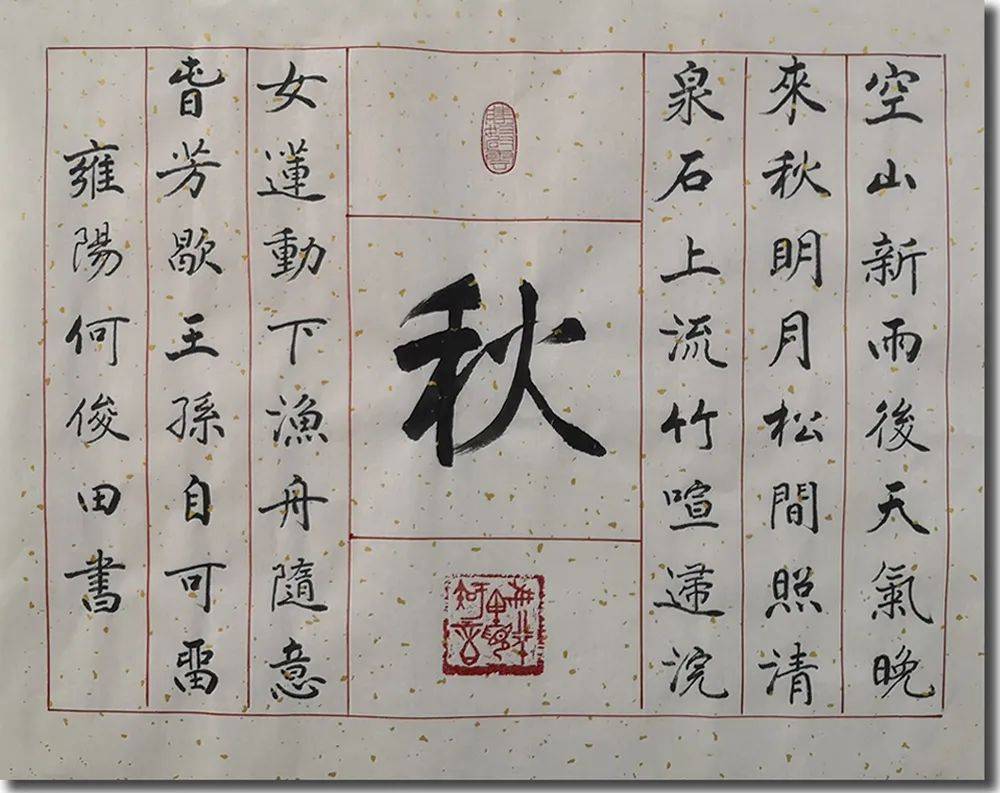 空山新雨後天氣晚
來秋明月松間照清
泉石上流竹喧歸浣
秋
女蓮動下漁舟隨意
旾芳歇王孫自可畱
雍陽何俊田書